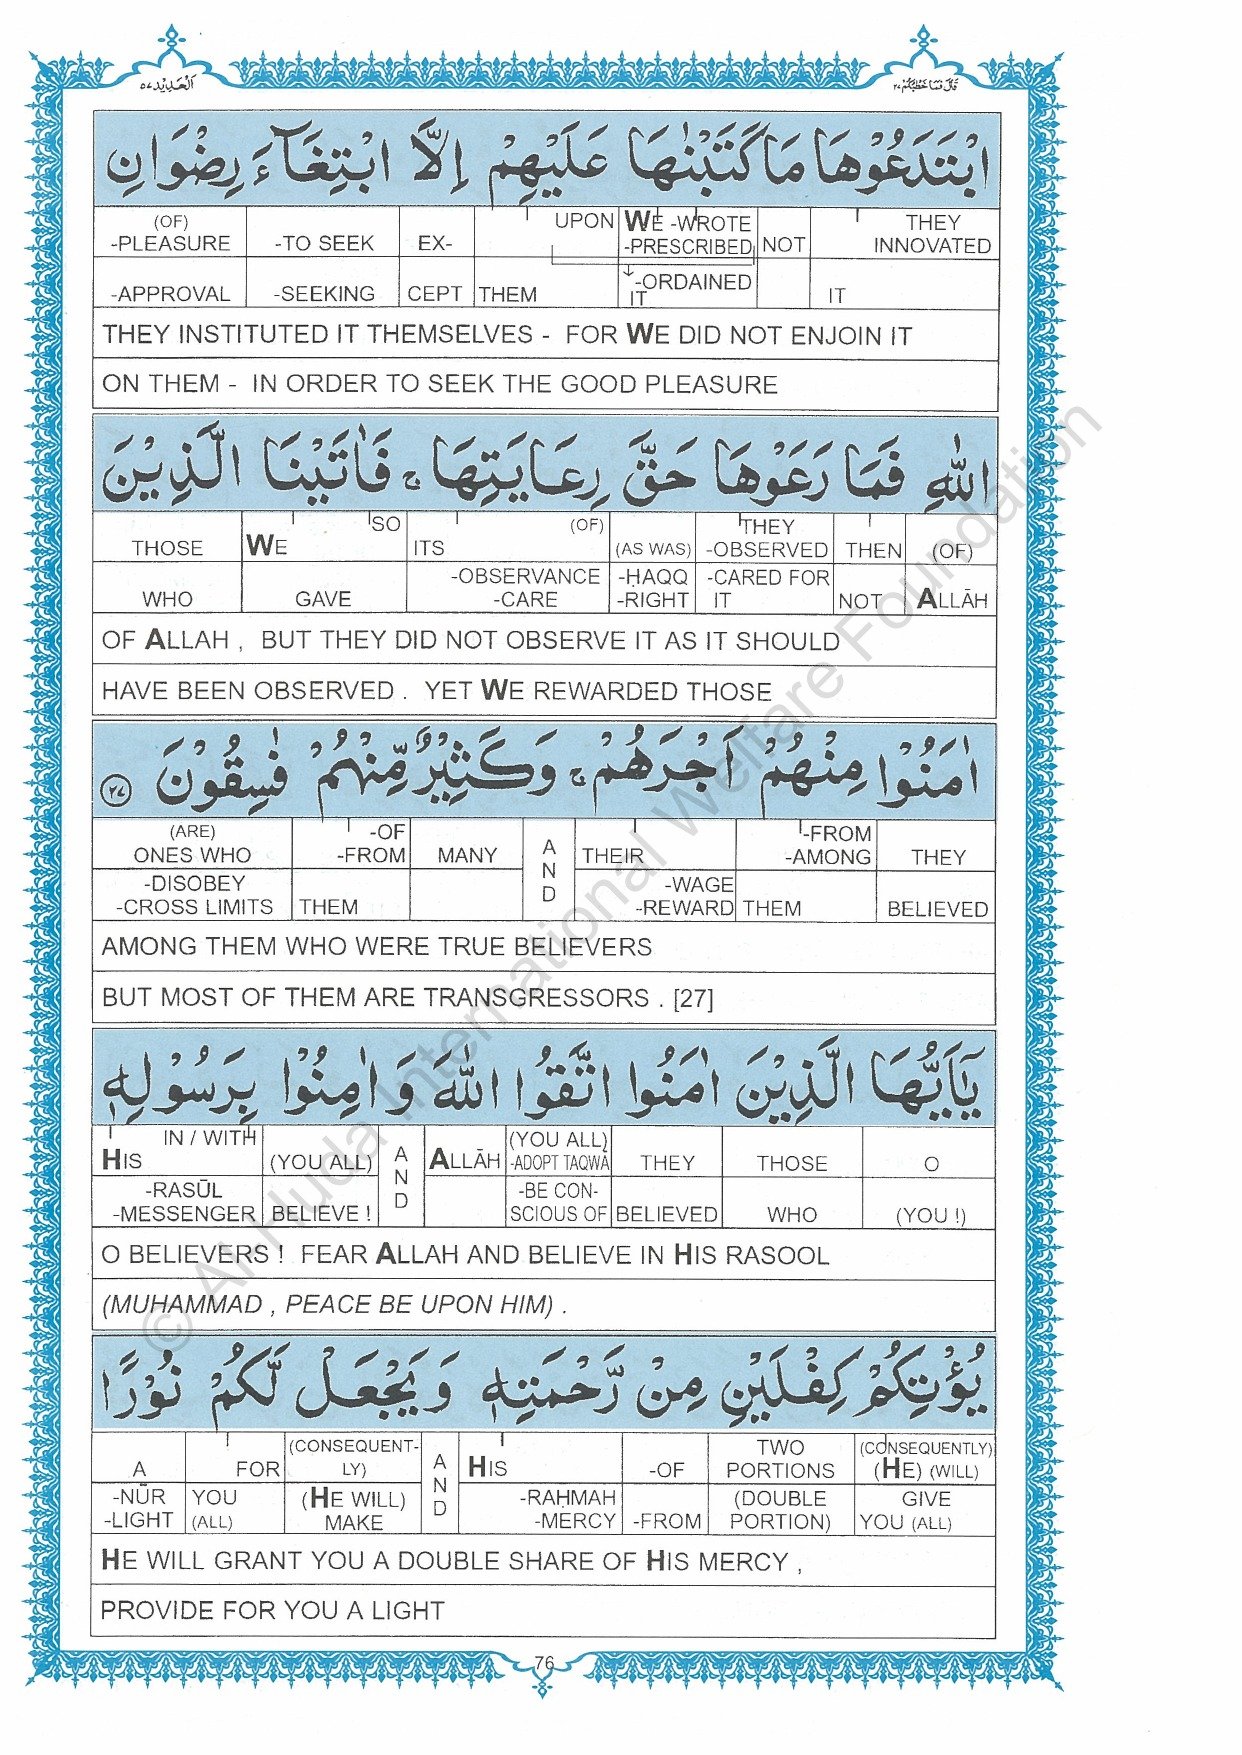 قَالَ فَمَا خَطْبُكُمْ ٢٧
اَلْحَدِيْد ٥٧
ابْتَدَعُوْهَا مَا كَتَبْنٰهَا عَلَيْهِمْ اِلَّا ابْتِغَآءَ رِضْوَانِ
(OF) UPON WE -WROTE THEY
-PLEASURE -TO SEEK EX- -PRESCRIBED NOT INNOVATED
-APPROVAL -SEEKING CEPT THEM -ORDAINED IT IT
THEY INSTITUTED IT THEMSELVES - FOR WE DID NOT ENJOIN IT
ON THEM - IN ORDER TO SEEK THE GOOD PLEASURE
اللّٰهِ فَمَا رَعَوْهَا حَقَّ رِعَايَتِهَا ۚ فَاٰتَيْنَا الَّذِيْنَ
SO (OF) THEY
THOSE WE ITS (AS WAS) -OBSERVED THEN (OF)
-OBSERVANCE -ḤAQQ -CARED FOR
WHO GAVE -CARE -RIGHT IT NOT ALLĀH
OF ALLAH , BUT THEY DID NOT OBSERVE IT AS IT SHOULD
HAVE BEEN OBSERVED . YET WE REWARDED THOSE
اٰمَنُوْا مِنْهُمْ اَجْرَهُمْ ۚ وَكَثِيْرٌ مِّنْهُمْ فٰسِقُوْنَ ٢٧
(ARE) -OF -FROM
ONES WHO -FROM MANY AND THEIR -AMONG THEY
-DISOBEY -WAGE
-CROSS LIMITS THEM -REWARD THEM BELIEVED
AMONG THEM WHO WERE TRUE BELIEVERS
BUT MOST OF THEM ARE TRANSGRESSORS . [27]
يٰۤاَيُّهَا الَّذِيْنَ اٰمَنُوا اتَّقُوا اللّٰهَ وَاٰمِنُوْا بِرَسُوْلِهٖ
IN / WITH (YOU ALL)
HIS (YOU ALL) AND ALLĀH -ADOPT TAQWĀ THEY THOSE O
-RASŪL -BE CON-
-MESSENGER BELIEVE ! SCIOUS OF BELIEVED WHO (YOU !)
O BELIEVERS ! FEAR ALLAH AND BELIEVE IN HIS RASOOL
(MUHAMMAD , PEACE BE UPON HIM) .
يُؤْتِكُمْ كِفْلَيْنِ مِنْ رَّحْمَتِهٖ وَيَجْعَلْ لَّكُمْ نُوْرًا
(CONSEQUENT- TWO (CONSEQUENTLY)
A FOR LY) AND HIS -OF PORTIONS (HE) (WILL)
-NŪR YOU (HE WILL) -RAḤMAH (DOUBLE GIVE
-LIGHT (ALL) MAKE -MERCY -FROM PORTION) YOU (ALL)
HE WILL GRANT YOU A DOUBLE SHARE OF HIS MERCY ,
PROVIDE FOR YOU A LIGHT
76
© Al-Huda International Welfare Foundation